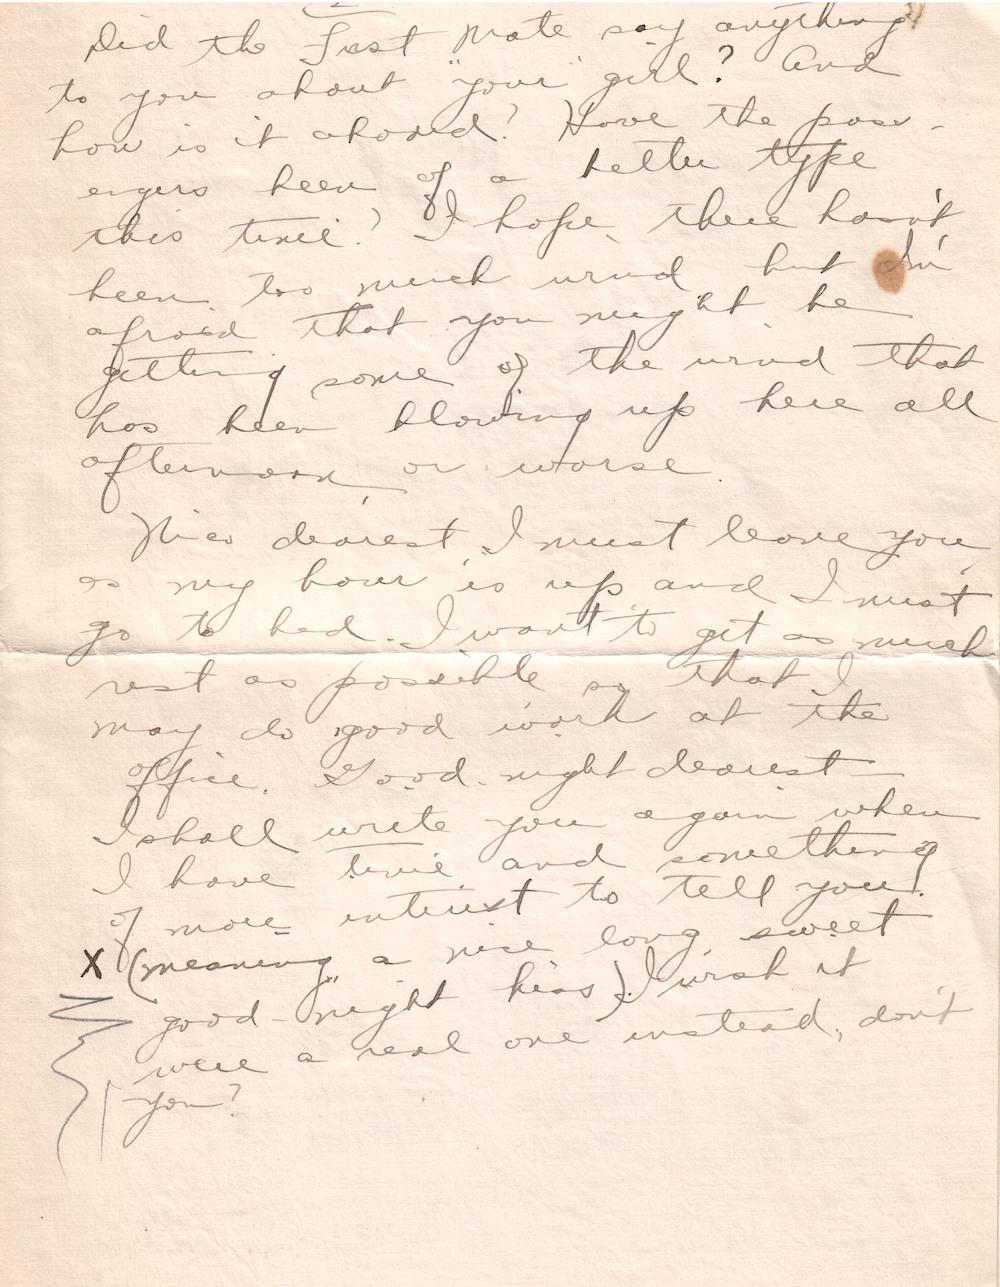 Did the First Mate say anything
to you about "your" girl? And
how is it aboard? Have the pass-
engers been of a better type
this time? I hope there hasn't
been too much wind but I'm
afraid that you might be
getting some of the wind that
has been blowing up here all
afternoon, or worse.
Nico dearest, I must leave you
as my hour is up and I must
go to bed. I want to get as much
rest as possible so that I
may do good work at the
office. Good-night dearest—
I shall write you again when
I have time and something
of more interest to tell you!
X (meaning a nice long sweet
good-night kiss). I wish it
were a real one instead, don't
you?